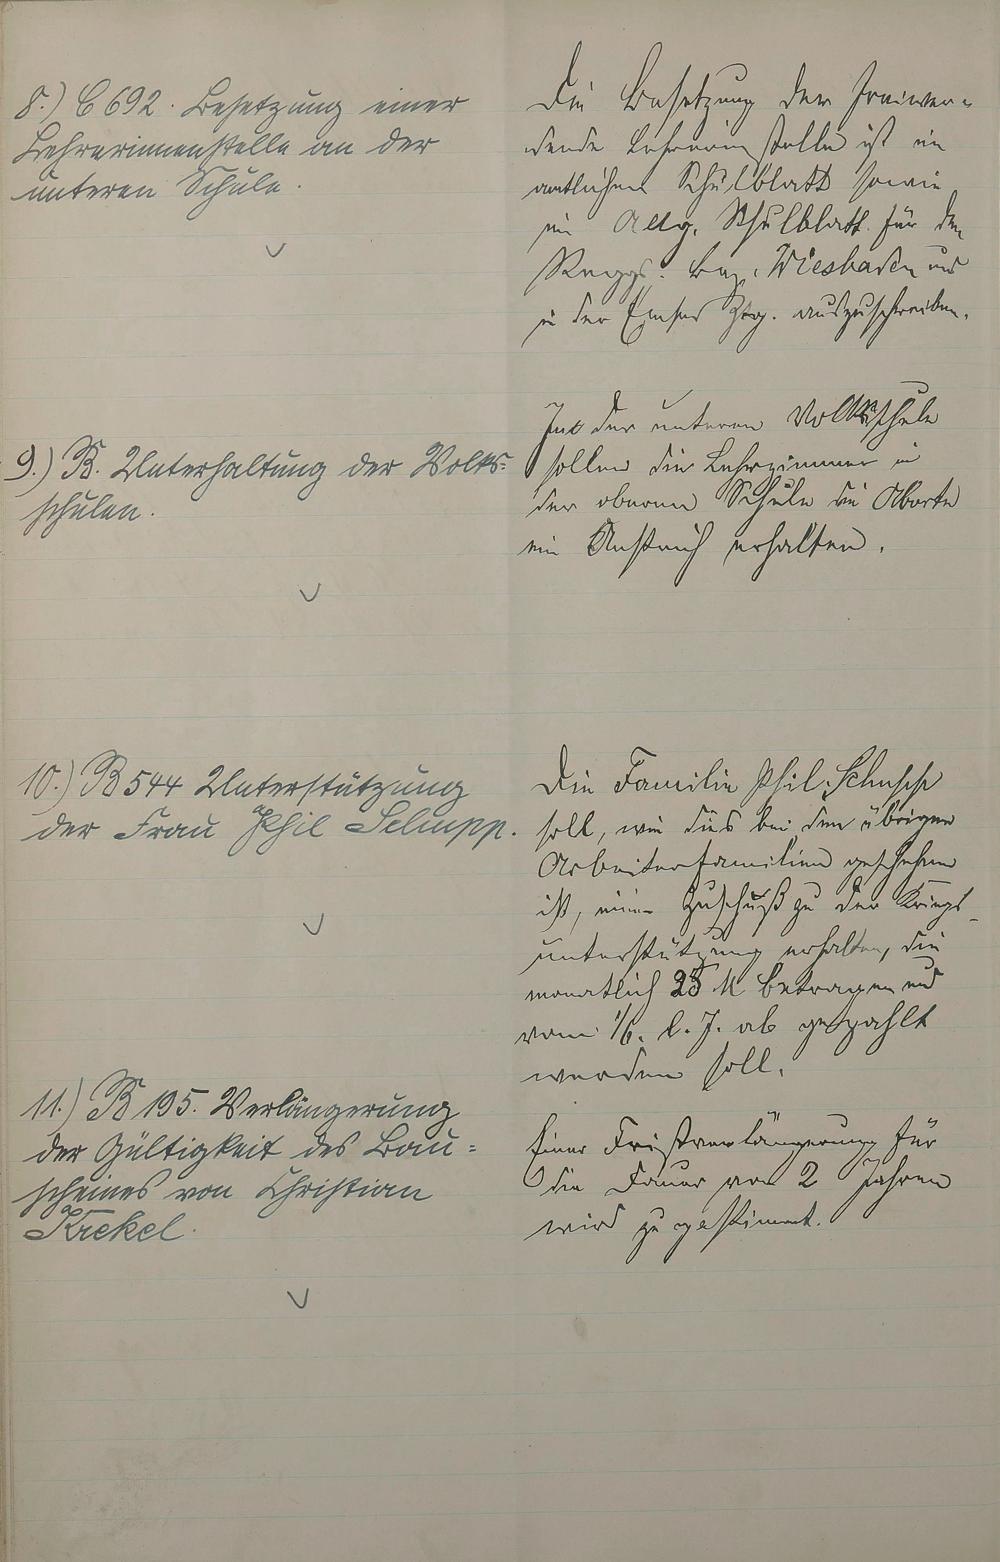 8.) C 692. Besetzung einer
Lehrerinnenstelle an der
unteren Schule.
Die Besetzung der freiwer-
dende Lehrerinstelle ist im
amtlichen Schulblatt sowie
im Allg. Schulblatt für den
Reggs. Bez. Wiesbaden und
in der Emser Ztg. auszuschreiben.
9.) B. Unterhaltung der Volks-
schulen.
In der unteren Volksschule
sollen die Lehrzimmer in
der oberen Schule die Aborte
ein Anstrich erhalten.
10.) B 544 Unterstützung
der Frau Phil Schupp.
Die Familie Phil. Schupp
soll, wie dies bei den übrigen
Arbeiterfamilien geschehen
ist, einen Zuschuß zu der Kriegs-
unterstützung erhalten, die
monatlich 25 M betragen und
vom 1/6. l. J. ab gezahlt
werden soll.
11.) B 195. Verlängerung
der Gültigkeit des Bau-
scheines von Christian
Krekel.
Einer Fristverlängerung für
die Dauer von 2 Jahren
wird zugestimmt.